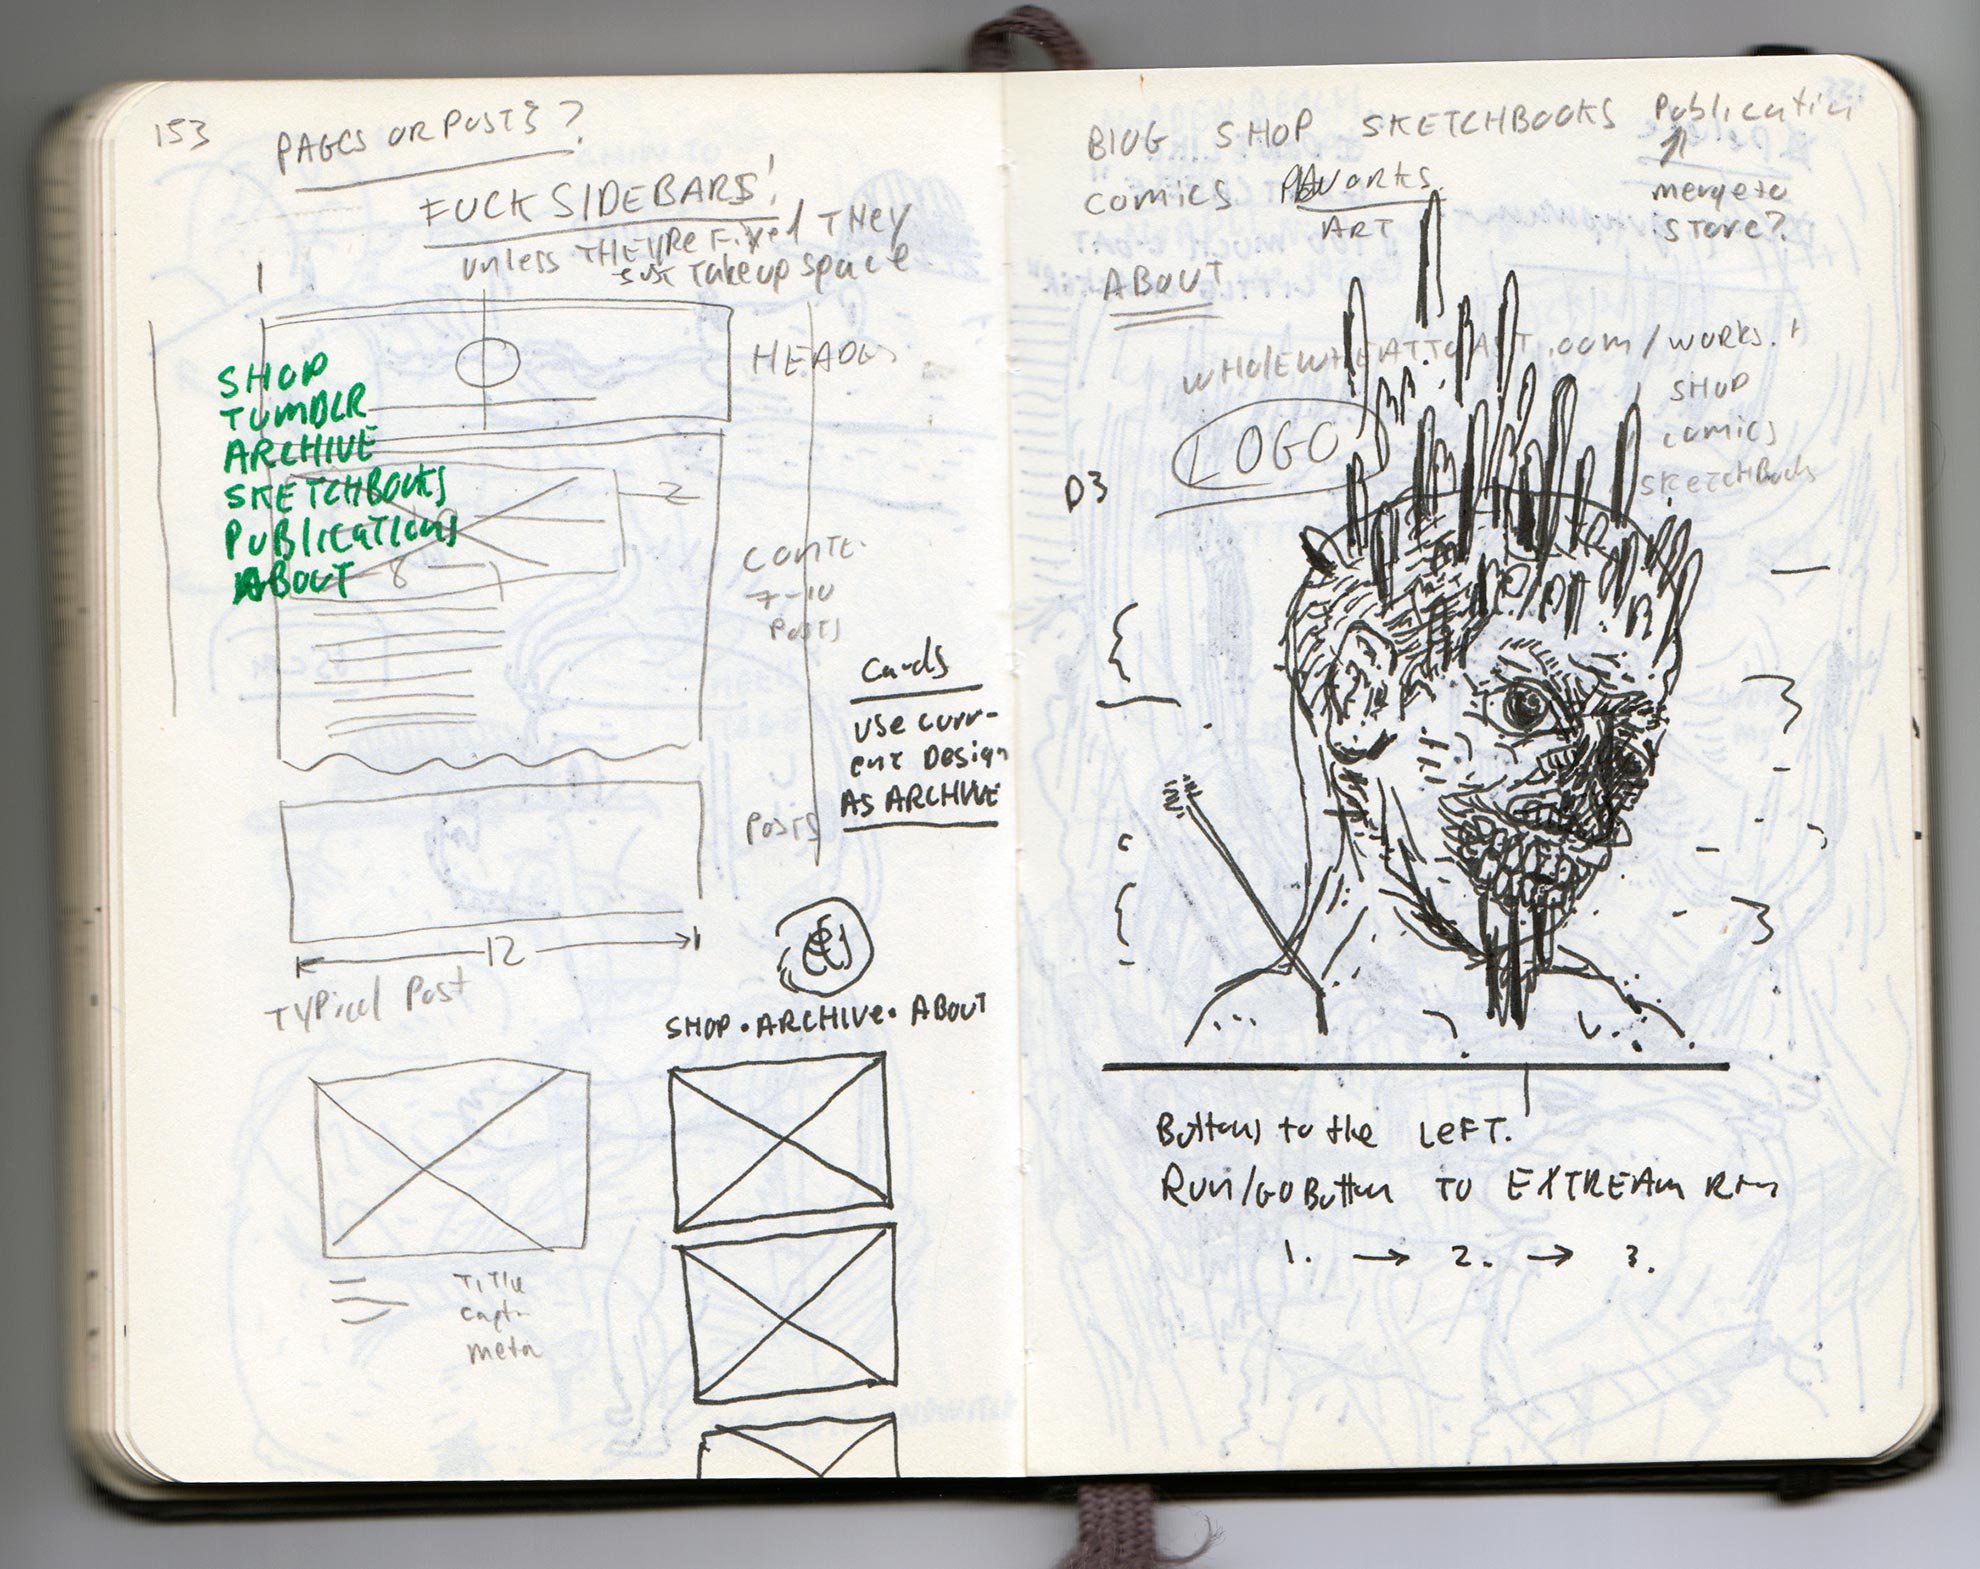 153
PAGES OR POSTS?
FUCK SIDEBARS!
unless THEYRE Fixed THEY
JUST Take up space
1
HEADER
SHOP
TUMBLR
ARCHIVE
SKETCHBOOKS
PUBLICATIONS
ABOUT
2
8
CONTE
7-10
POSTS
Cards
USE CURR-
ENT DESIGN
AS ARCHIVE
POSTS
12
TYPICAL POST
SHOP • ARCHIVE • ABOUT
TITLE
capt
meta
BLOG SHOP SKETCHBOOKS Publication
COMICS WORKS
ART
merge to
store?
ABOUT
WHOLEWHEATTOAST.COM/WORKS
SHOP
comics
sketchbooks
LOGO
D3
Buttons to the LEFT.
RUN/GO Button TO EXTREAM
1. → 2. → 3.